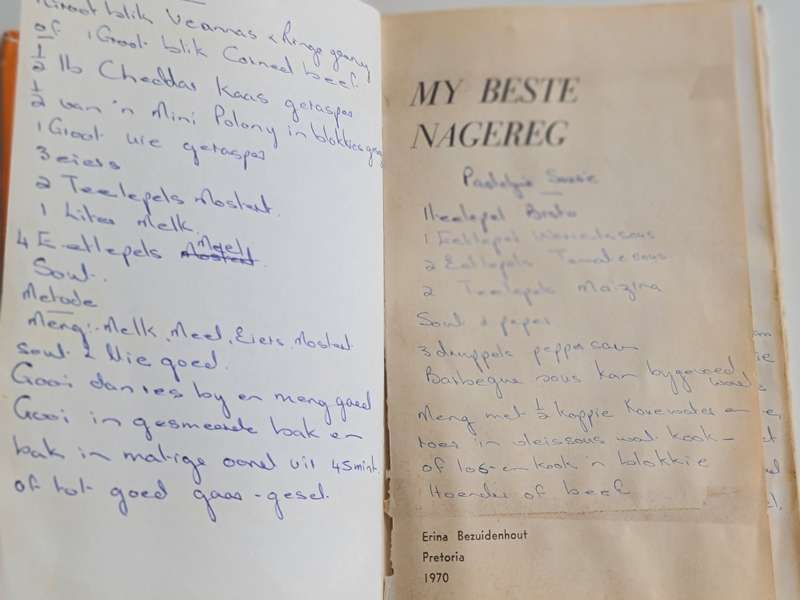 1 Groot blik Veannas & Ringe gesny
of 1 Groot blik Corned beef.
1/2 lb Cheddar Kaas getasper
1/2 van 'n Mini Polony in blokkies gesny
1 Groot uie getasper
3 eiers
2 Teelepels Mostert.
1 Liter Melk.
4 Eetlepels Meel
Sout.
Metode
Meng:- Melk, Meel, Eiers, Mostert
sout & Uie goed.
Gooi dan res by en meng goed
Gooi in gesmeerde bak en
bak in matige oond vir 45 mint.
of tot goed gaar - gesel.
MY BESTE
NAGEREG
Pasteitjie Sousie
1 teelepel Bisto
1 Eetlepel Worcestersous
2 Eetlepels Tamatiesous
2 Teelepels Maizina
Sout & peper
3 druppels peppersau
Barbeque sous kan bygevoeg
word
Meng met 1/2 koppie Kouewater en
roer in vleissous wat kook -
of los-en kook 'n blokkie
Hoender of beef
Erina Bezuidenhout
Pretoria
1970